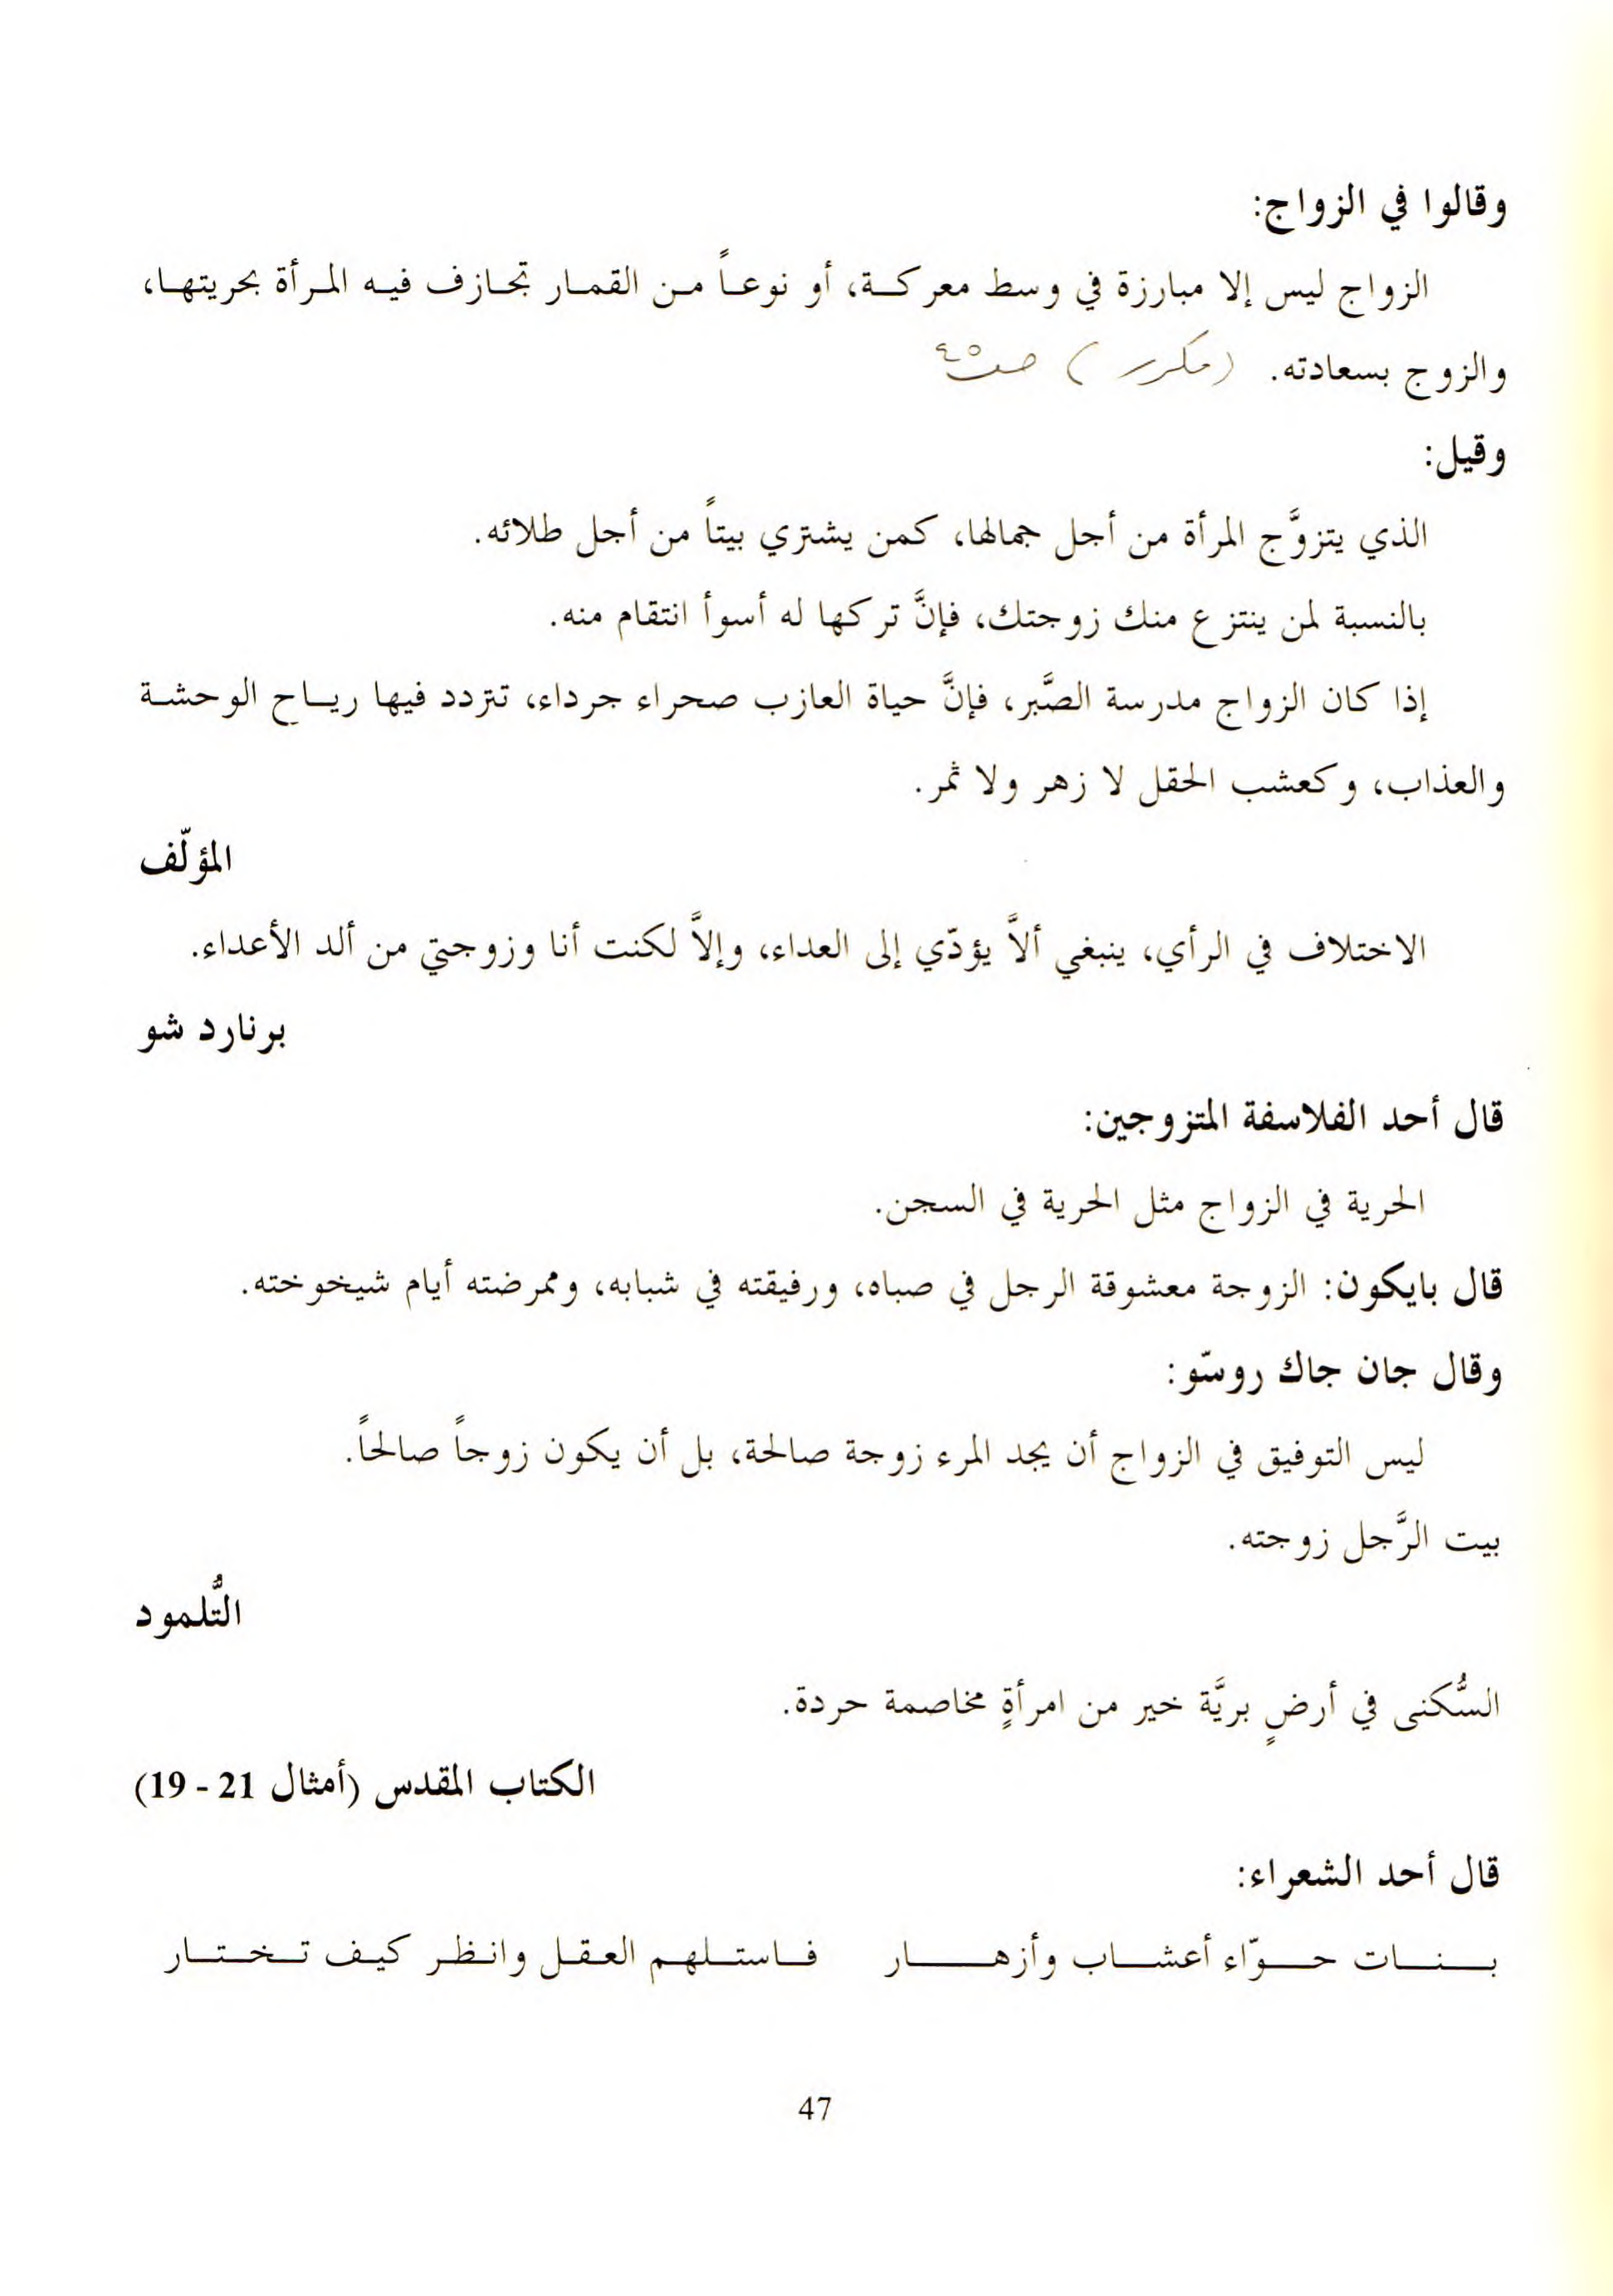 وقالوا في الزواج:
الزواج ليس إلا مبارزة في وسط معركة، أو نوعاً من القمار تجازف فيه المرأة بحريتها،
والزوج بسعادته. (مكرر) صـ ٤٥
وقيل:
الذي يتزوَّج المرأة من أجل جمالها، كمن يشتري بيتاً من أجل طلائه.
بالنسبة لمن ينتزع منك زوجتك، فإنَّ تركها له أسوأ انتقام منه.
إذا كان الزواج مدرسة الصَّبر، فإنَّ حياة العازب صحراء جرداء، تتردد فيها رياح الوحشة
والعذاب، وكعشب الحقل لا زهر ولا ثمر.
المؤلّف
الاختلاف في الرأي، ينبغي ألاَّ يؤدّي إلى العداء، وإلاَّ لكنت أنا وزوجتي من ألد الأعداء.
برنارد شو
قال أحد الفلاسفة المتزوجين:
الحرية في الزواج مثل الحرية في السجن.
قال بايكون: الزوجة معشوقة الرجل في صباه، ورفيقته في شبابه، وممرضته أيام شيخوخته.
وقال جان جاك روسّو:
ليس التوفيق في الزواج أن يجد المرء زوجة صالحة، بل أن يكون زوجاً صالحاً.
بيت الرَّجل زوجته.
التُّلمود
السُّكنى في أرضٍ بريَّة خير من امرأةٍ مخاصمة حردة.
الكتاب المقدس (أمثال 21 - 19)
قال أحد الشعراء:
بنات حوّاء أعشاب وأزهار فاستلهم العقل وانظر كيف تختار
47